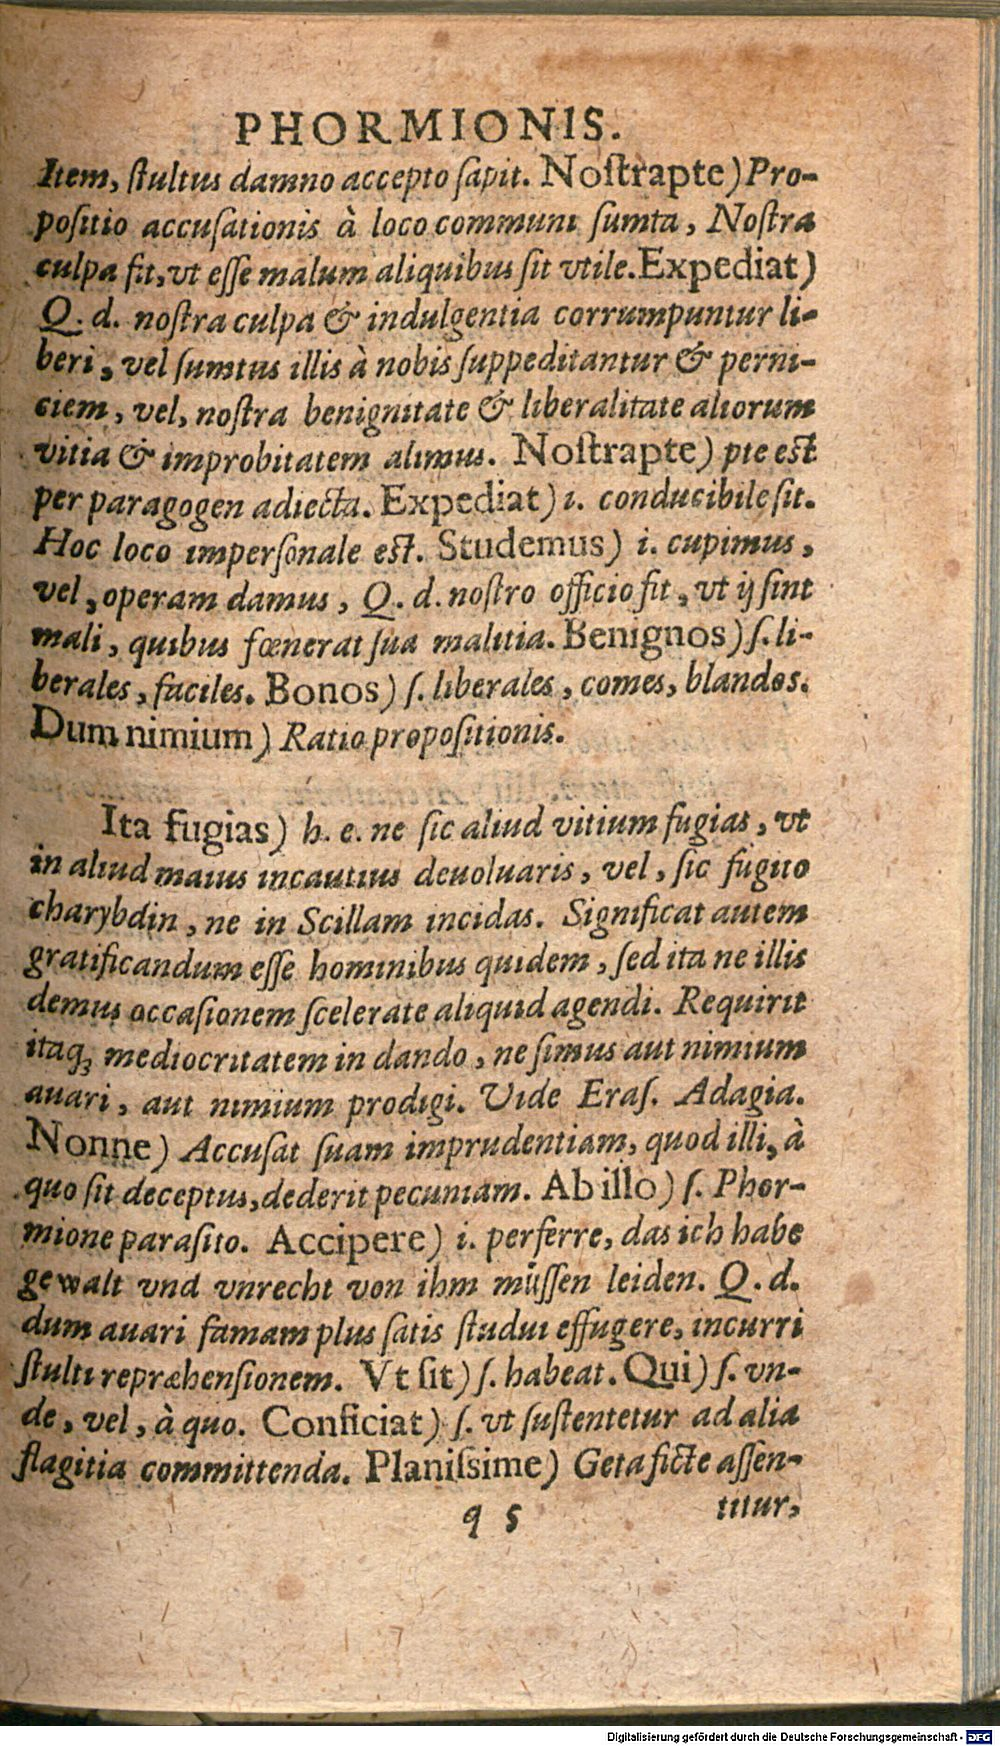 PHORMIONIS.
Item, ſtultus damno accepto ſapit. Noſtrapte) Pro-
poſitio accuſationis à loco communi ſumta, Noſtra
culpa fit, vt eſſe malum aliquibus ſit vtile. Expediat)
Q. d. noſtra culpa & indulgentia corrumpuntur li-
beri, vel ſumtus illis à nobis ſuppeditantur & perni-
ciem, vel, noſtra benignitate & liberalitate aliorum
vitia & improbitatem alimus. Noſtrapte) pte eſt
per paragogen adiecta. Expediat) i. conducibile ſit.
Hoc loco imperſonale eſt. Studemus) i. cupimus,
vel, operam damus, Q. d. noſtro officio fit, vt ij ſint
mali, quibus fœnerat ſua malitia. Benignos) ſ. li-
berales, faciles. Bonos) ſ. liberales, comes, blandos.
Dum nimium) Ratio propoſitionis.
Ita fugias) h. e. ne ſic aliud vitium fugias, vt
in aliud maius incautius deuoluaris, vel, ſic fugito
charybdin, ne in Scillam incidas. Significat autem
gratificandum eſſe hominibus quidem, ſed ita ne illis
demus occaſionem ſcelerate aliquid agendi. Requirit
itaqꝫ mediocritatem in dando, ne ſimus aut nimium
auari, aut nimium prodigi. Vide Eraſ. Adagia.
Nonne) Accuſat ſuam imprudentiam, quod illi, à
quo ſit deceptus, dederit pecuniam. Ab illo) ſ. Phor-
mione paraſito. Accipere) i. perferre, das ich habe
gewalt vnd vnrecht von ihm müſſen leiden. Q. d.
dum auari famam plus ſatis ſtudui effugere, incurri
ſtulti repræhenſionem. Vt ſit) ſ. habeat. Qui) ſ. vn-
de, vel, à quo. Conficiat) ſ. vt ſuſtentetur ad alia
flagitia committenda. Planiſsime) Geta ficte aſſen-
q 5 titur,
Digitalisierung gefördert durch die Deutsche Forschungsgemeinschaft - DFG